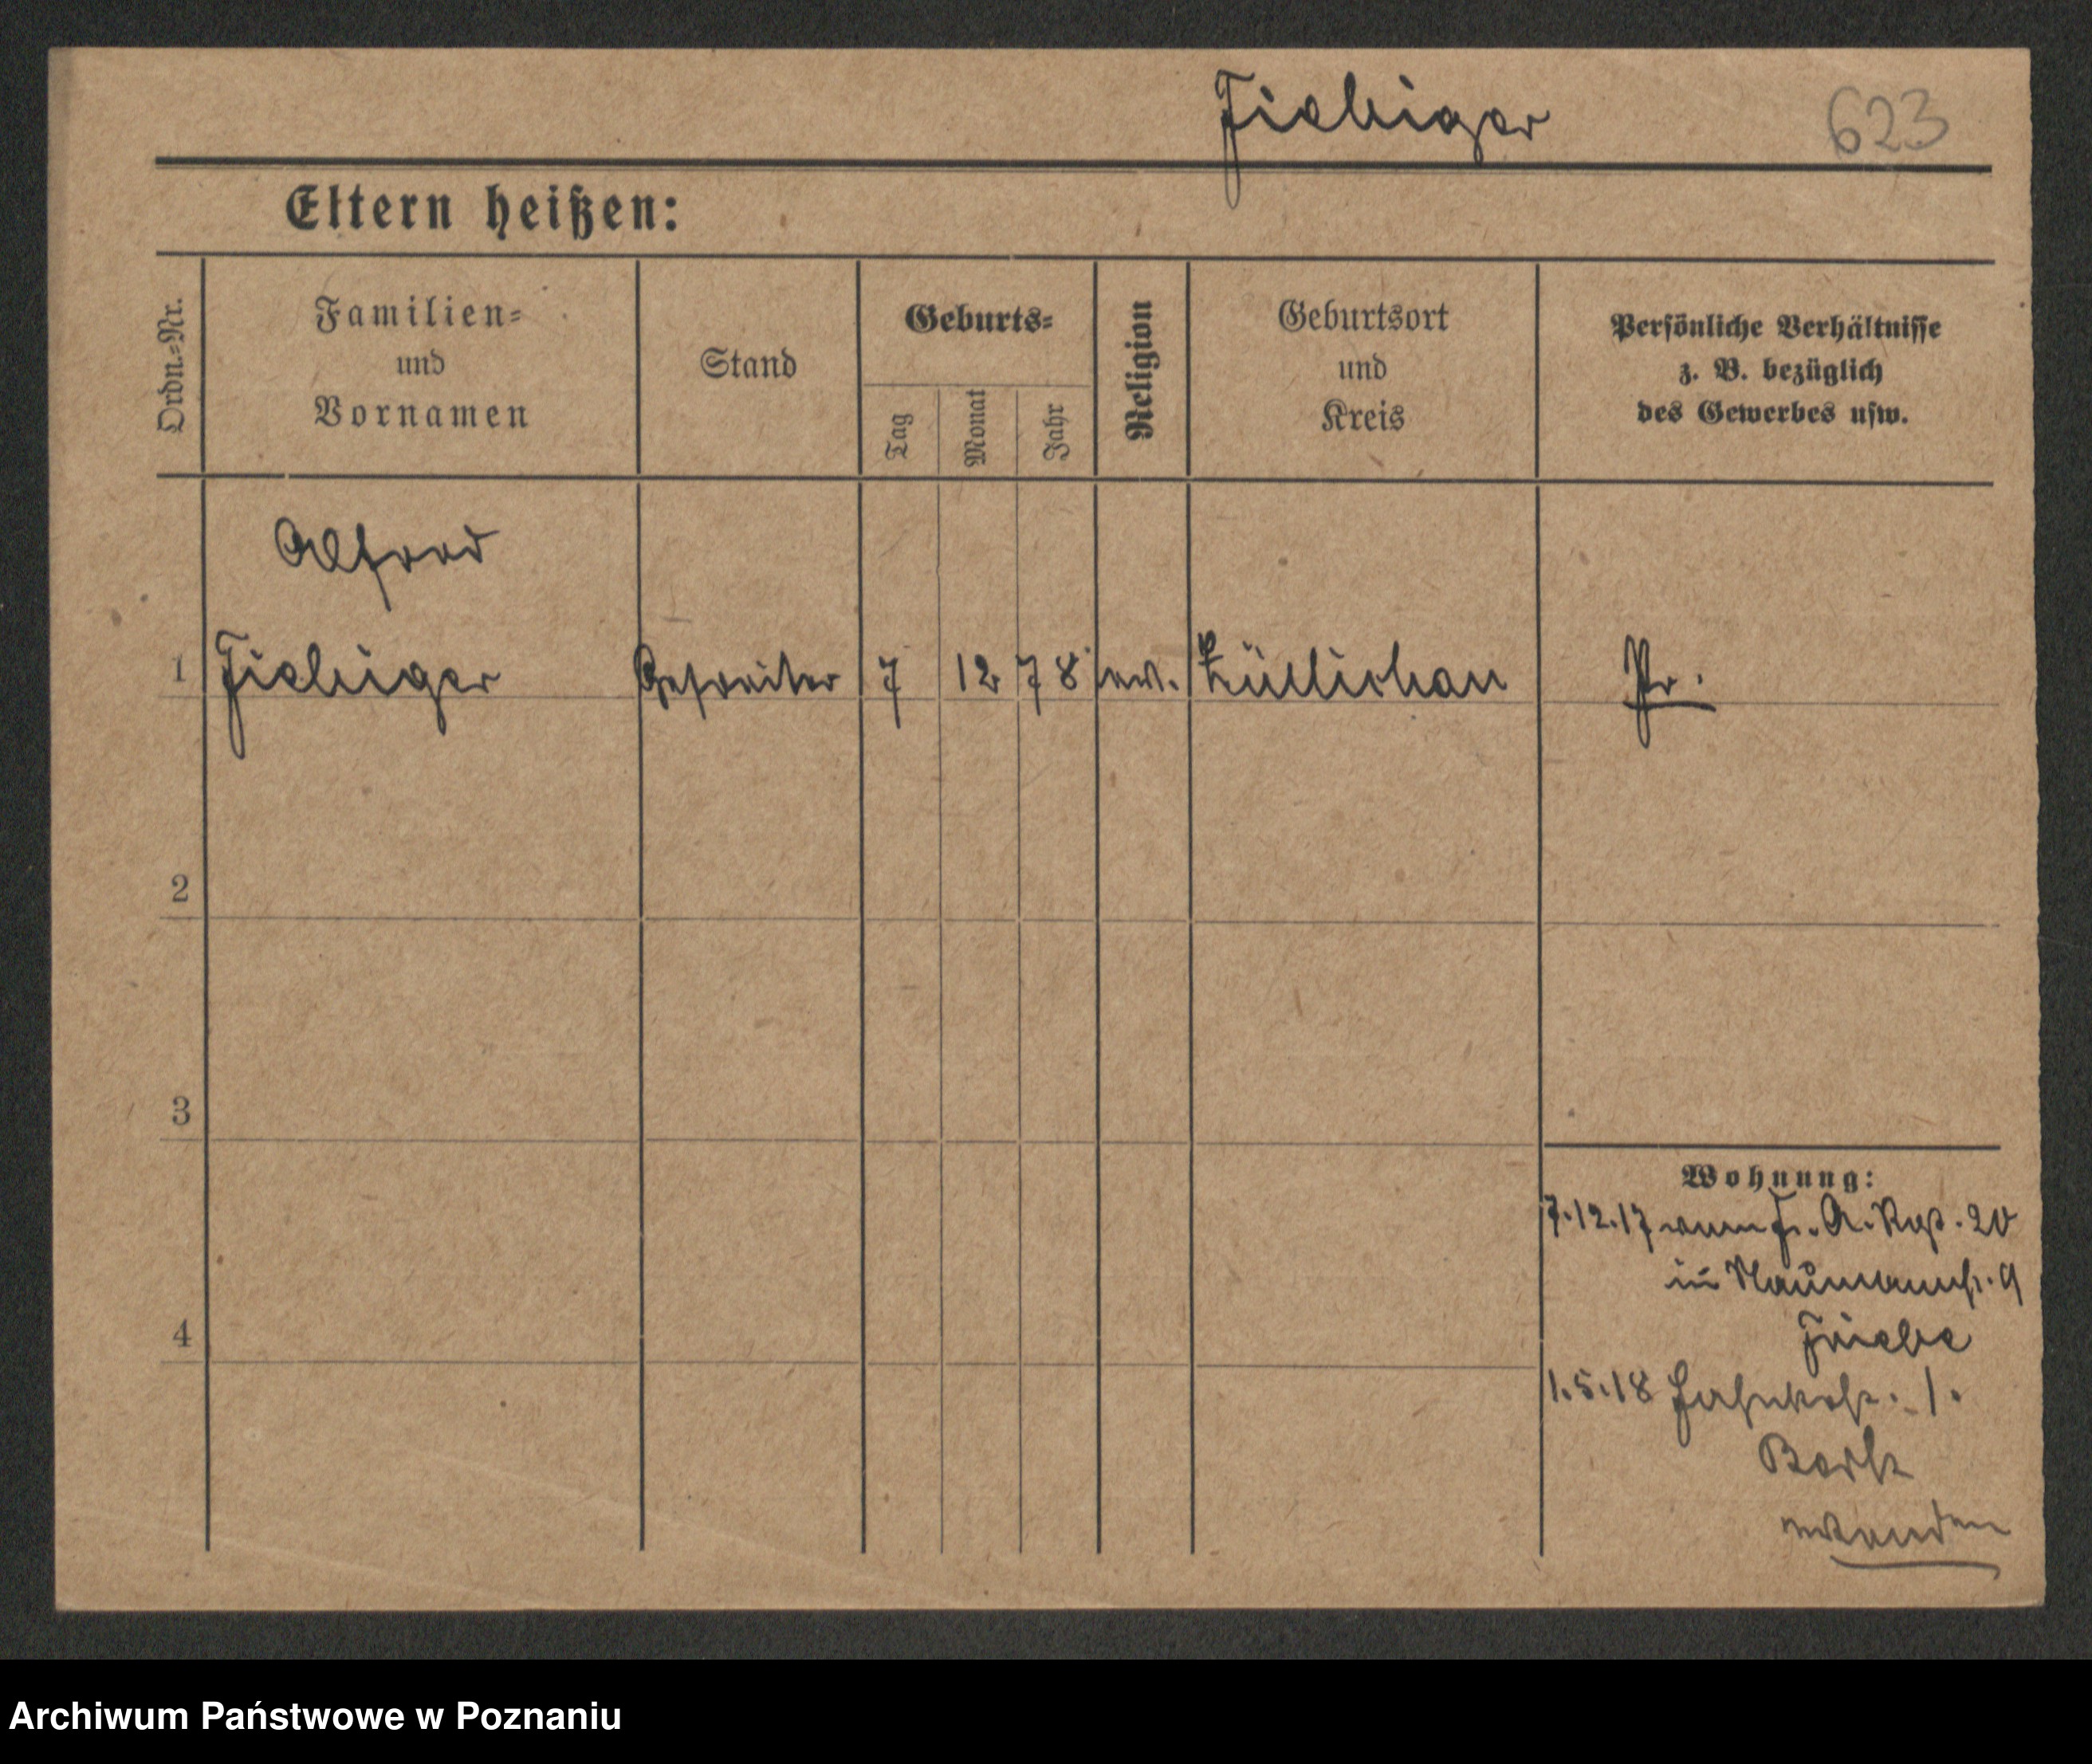 Fiebiger 623
Eltern heißen:
Ordn.=Nr.
Familien=
und
Vornamen
Stand
Geburts=
Tag
Monat
Jahr
Religion
Geburtsort
und
Kreis
Persönliche Verhältnisse
z. B. bezüglich
des Gewerbes usw.
Alfred
1 Fiebiger Gefreiter 7 12 78 ev. Züllichau Pr.
2
3
4
Wohnung:
7.12.17 A. Rgt. 20
in Naumannstr. 9
Friebe
1.5.18 1.
Archiwum Państwowe w Poznaniu